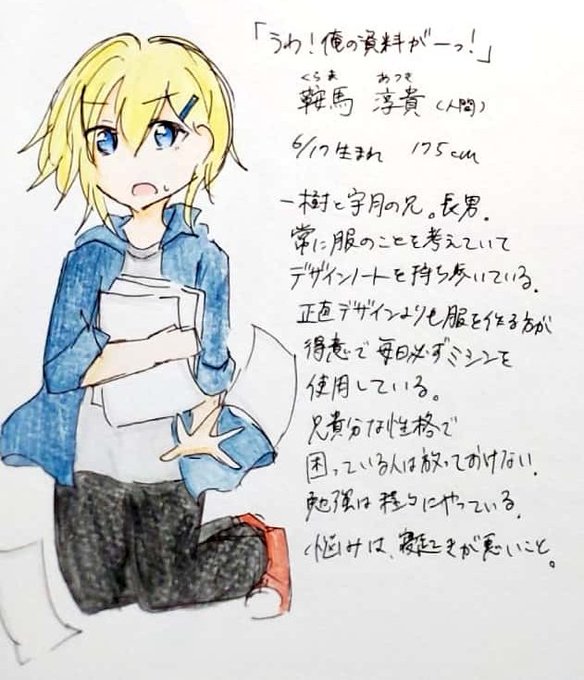 「うわ！俺の資料がーっ！」
くらま あつき
鞍馬 淳貴（人間）
6/17生まれ 175cm
一樹と宇月の兄。長男.
常に服のことを考えていて
デザインノートを持ち歩いている.
正直デザインよりも服を作る方が
得意で毎日必ずミシンを
使用している。
兄貴分な性格で
困っている人は放っておけない.
勉強は程々にやっている.
悩みは、寝起きが悪いこと。